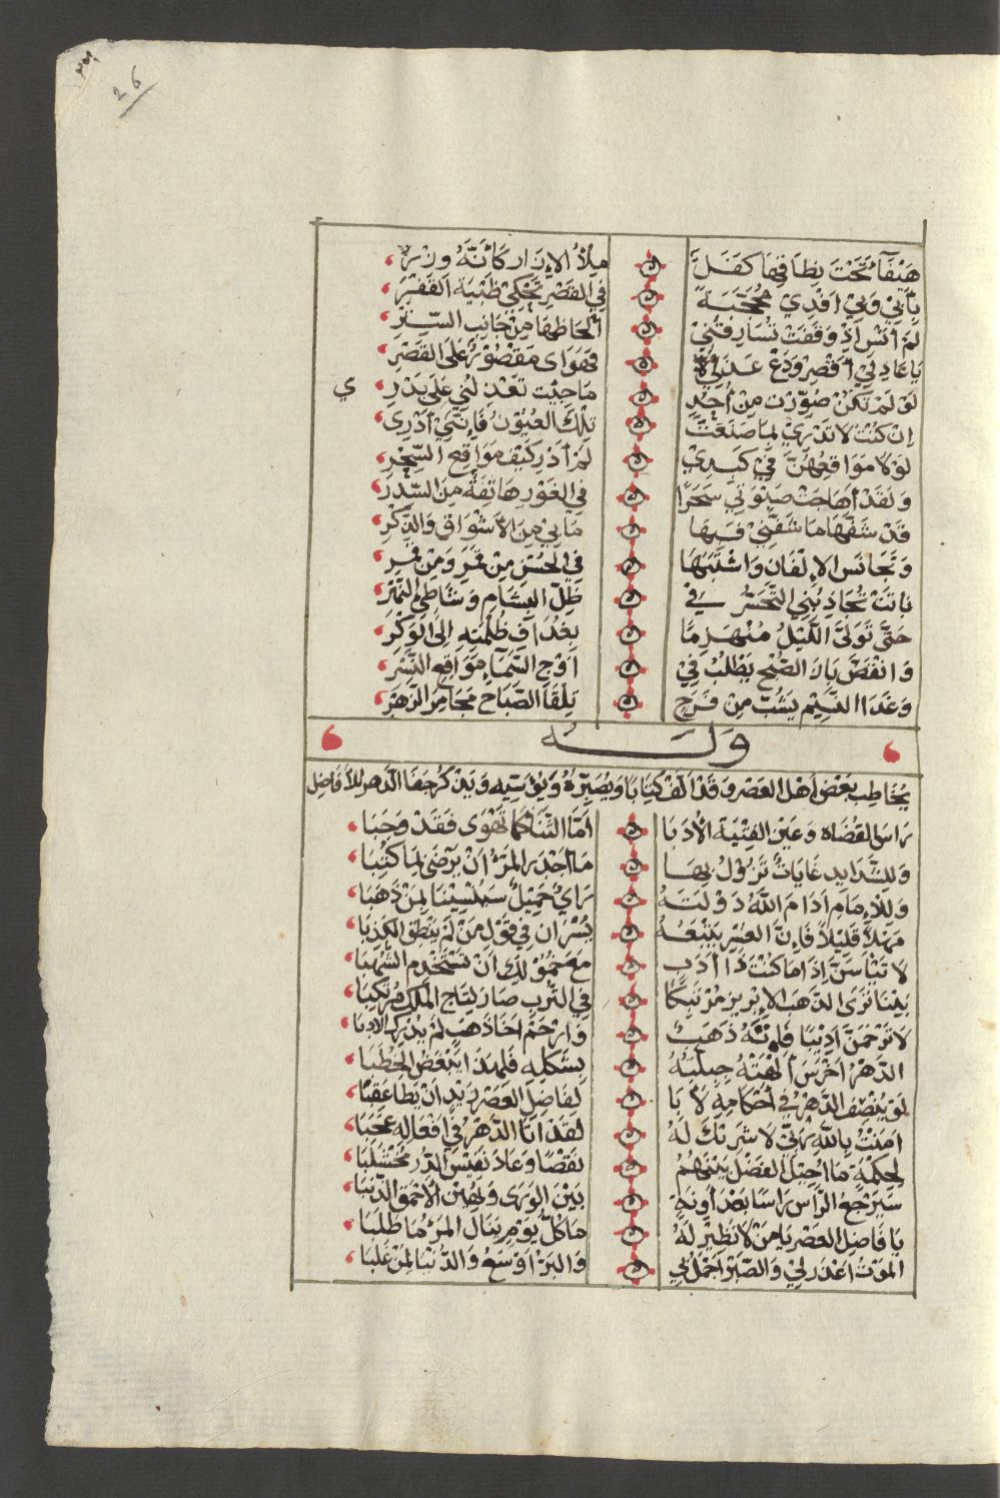 26
هَيْفَآءُ تَحْتَ نِطَاقِهَا كَفَلٌ ملأُ الإزَارِ كَأَنَّهُ وِزْرُ
بِأَبِي وَبِيْ أَفْدِي مُحَجَّبَةً فِي القَصْرِ تَحْكِيْ ظَبْيَةَ القَفْرِ
لَمْ أَنْسَ إِذْ وَقَفَتْ تُسَارِقُنِيْ أَلحَاظهَا مِنْ جَانِبِ السِّتْرِ
يَا عَاذِلِيْ أَقْصِر وَدَعْ عَذَلِيْ فَهَوَاى مَقْصُوْرٌ عَلَى القَصْرِ
لَوْ لَمْ تَكُنْ صُوِّرْتَ مِنْ أُحُدٍ مَا جِئْتَ تَعْذِلُنِي عَلَى بَدْرِ ي
إِنْ كُنْتَ لَا تَدْرِيْ بِمَا صَنَعَتْ تِلْكَ العُيُوْنُ فَإِنَّنِيْ أَدْرِى
لَوْلَا مَوَاقِعُهُنَّ فِيْ كَبِدِيْ لَمْ أَدْرِ كَيْفَ مَوَاقِع السِّحْرِ
وَلَقَدْ أَهَاجَتْ صَبْوَتِيْ سَحَرًا فِي الغَوْرِ هَاتِفَةٌ مِنَ السِّدْرِ
قَدْ شَفَّهَا مَا شَفَّنِيْ فَبِهَا مَا بِيْ مِنَ الأَشْوَاقِ وَالذِّكْرِ
وَتَجَانَسَ الإِلْفَانِ وَاشْتَبَهَا فِي الحُسْنِ مِنْ قَمَرٍ وَمِنْ قمرِ
بَاتَتْ تُجَاذِبُنِي التَّحَسُّرَ فِيْ ظِلِّ البَشَامِ وَشَاطِئِ النَّهْرِ
حَتَّى تَوَلَّى اللَّيْلُ مُنْهَزِمًا بِغُدَافِ ظُلْمَتِهِ إِلَى الوَكْرِ
وَانْقَضَّ بَازُ الصُّبْحِ يَطْلُبُ فِيْ أَوْجِ السَّمَآءِ مَوَاقِعِ النَّسْرِ
وَغَدَا النَّسِيْم يَشُبُّ مِنْ فَرَحٍ يَلْقَا الصَّبَاحَ مَجَامِرَ الزَّهْرِ
وَلَــــــهُ
يُخَاطِب بَعْضَ أهْل العَصْر وَقَدْ أَلَّفَ كِتَابًا وَيُصَبِّرُهُ وَيُؤَسِّيهِ وَيَذْكُر جَفَا الدَّهر للأَفَاضِل
رَاسَ القُضَاة وَعَيْنَ الفِتْيَة الأُدَبَا أَمَّا الثَّنَا كَمَا تَهْوَى فَقَدْ وَجَبَا
وَلِلشَّدَايِدِ غَايَاتٌ تَزُوْلُ بِهَا مَا أَجْدَرَ المَرْءُ أَنْ يَرْضَى بِمَا كُتِبَا
وَلِلْإِمَامِ أَدَامَ اللَّهُ دَوْلَتَهُ رَايٌ جَمِيْلٌ سَيُنْسِيْنَا لِمَنْ ذَهَبَا
مَهْلًا قَلِيْلًا فَإِنَّ العُسْرَ يَتْبَعُهُ يُسْرَانِ فِي قَوْلِ مَنْ لَمْ يَنْطِقِ الكَذِبَا
لَا تَيْأَسَنَّ إِذَا مَا كُنْتَ ذَا أَدَبٍ مَعَ خُمُوْلِكَ أَنْ تَسْتَخْدِم الشُّهُبَا
بَيْنَا تَرَى الذَّهَبَ الإِبْرِيز مُرْتَبِكًا فِي التُّرْبِ صَارَ لِتَاجِ المُلْكِ مُرْتَكِبَا
لَا تَرْحَمَنَّ أَدِيْبًا فَاتَهُ ذَهَبٌ وَارْحَمْ أَخَا ذَهَبٍ لَمْ يُدْرِكِ الأَدَبَا
الدَّهْرُ أَخْرَسُ أَلْهَتْهُ جِبِلَّتُهُ بِشَكْلِهِ فَلِهَذَا يُبْغِضُ الخُطَبَا
لَوْ يُنْصِفُ الدَّهْرُ فِي أَحْكَامِهِ لَأَبَا لِفَاضِلِ العَصْرِ زَيْدٍ أَنْ يَطَا عَقَبًا
آمَنْتُ بِاللَّهِ رَبِّيْ لَا شَرِيْكَ لَهُ لَقَدْ أَتَا الدَّهْرُ فِي أَفْعَالِهِ عَجَبَا
لِحِكْمَةٍ مَا أُحِيْلَ الفَضْلُ بَيْنَهُمُ نَقْصًا وَعَادَ نَفِيْسُ الدُّرِّ مَخْشَلَبَا
سَيَرْجِعُ الرَّاس رَاسًا بَعْدَ آوِنَةٍ بَيْنَ الوَرَى وَيُهِيْن الأَحْمَق الذَّنَبَا
يَا فَاضِلَ العَصْرِ يَا مَنْ لَا نَظِيْرَ لَهُ مَا كُلّ يَوْمٍ يَنَال المَرْءُ مَا طَلَبَا
المَوْتُ أَعْذَر لِيْ وَالصَّبْرُ أَجْمَلُ بِي وَالبَرّ أَوْسَعُ وَالدُّنْيَا لِمَنْ غَلَبَا